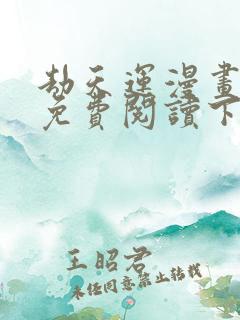 劫天運漫畫
免費閱讀下
王昭君
未經同意禁止轉載